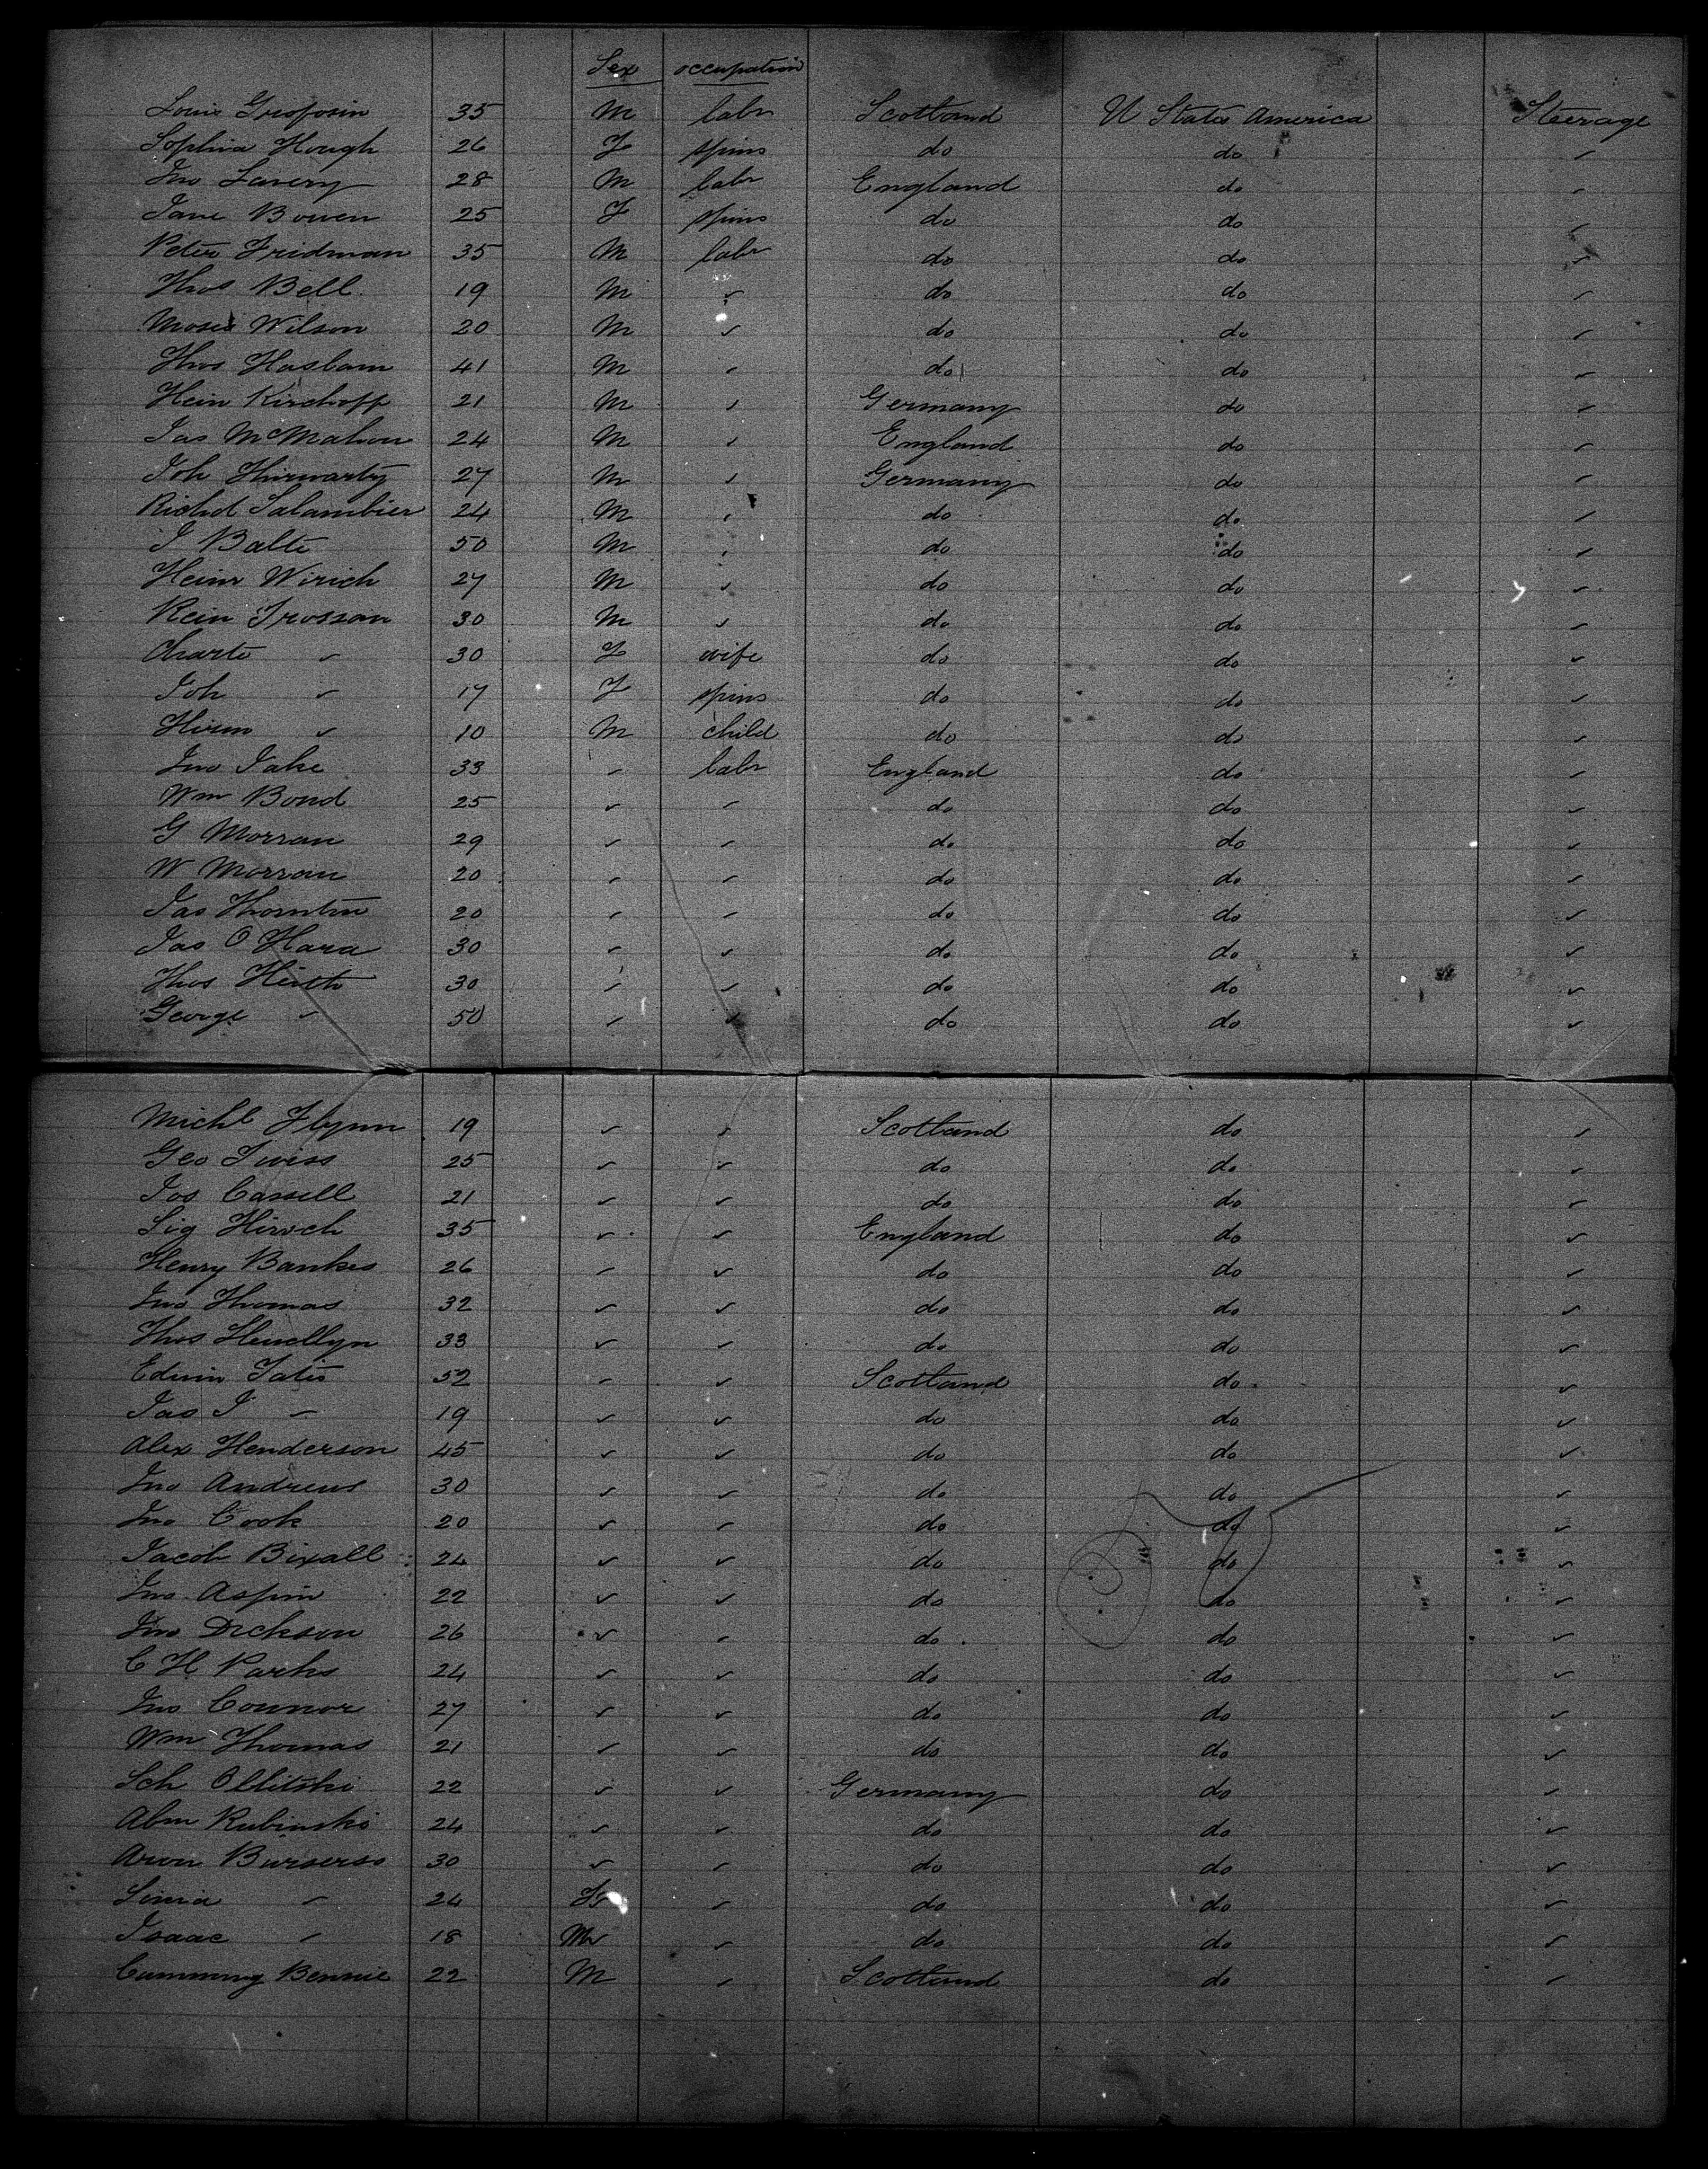 Sex occupation
Louis Grosfosin 35 M labr Scotland U States America Steerage
Sophia Hough 26 F spins do do ✓
Jno Lavery 28 M labr England do ✓
Jane Bowen 25 F spins do do ✓
Peter Fridman 35 M labr do do ✓
Thos Bell 19 M ✓ do do ✓
Moses Wilson 20 M ✓ do do ✓
Thos Haslam 41 M ✓ do do ✓
Hein Kirchoff 21 M ✓ Germany do ✓
Jas McMahon 24 M ✓ England do ✓
Joh 27 M ✓ Germany do ✓
Richd Salambier 24 M ✓ do do ✓
J Balte 50 M ✓ do do ✓
Heinr Wirich 27 M ✓ do do ✓
Rein Trossan 30 M ✓ do do ✓
Charte ✓ 30 F wife do do ✓
Joh ✓ 17 F spins do do ✓
Hirm ✓ 10 M child do do ✓
Jno Jake 33 ✓ labr England do ✓
Wm Bond 25 ✓ ✓ do do ✓
G Morran 29 ✓ ✓ do do ✓
W Morran 20 ✓ ✓ do do ✓
Jas Thornton 20 ✓ ✓ do do ✓
Jas O Hara 30 ✓ ✓ do do ✓
Thos Hirth 30 ✓ ✓ do do ✓
George ✓ 50 ✓ ✓ do do ✓
Michl Flynn 19 ✓ ✓ Scotland do ✓
Geo Twiss 25 ✓ ✓ do do ✓
Jos Cassell 21 ✓ ✓ do do ✓
Sig Hirsch 35 ✓ ✓ England do ✓
Henry Bankes 26 ✓ ✓ do do ✓
Jno Thomas 32 ✓ ✓ do do ✓
Thos Llewellyn 33 ✓ ✓ do do ✓
Edwin Tates 52 ✓ ✓ Scotland do ✓
Jas J ✓ 19 ✓ ✓ do do ✓
Alex Henderson 45 ✓ ✓ do do ✓
Jno Andrews 30 ✓ ✓ do do ✓
Jno Cook 20 ✓ ✓ do do ✓
Jacob Bixall 24 ✓ ✓ do do ✓
Jno Aspin 22 ✓ ✓ do do ✓
Jno Dickson 26 ✓ ✓ do do ✓
C H Parks 24 ✓ ✓ do do ✓
Jno Connor 27 ✓ ✓ do do ✓
Wm Thomas 21 ✓ ✓ do do ✓
Sch Ollitski 22 ✓ ✓ Germany do ✓
Abm Rubinski 24 ✓ ✓ do do ✓
Aron Burserss 30 ✓ ✓ do do ✓
Simia ✓ 24 F ✓ do do ✓
Isaac ✓ 18 M ✓ do do ✓
Cumming Bennie 22 M ✓ Scotland do ✓